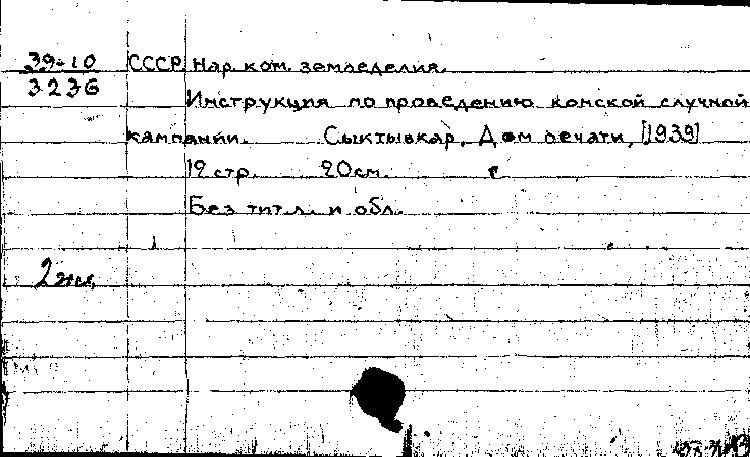 39-10 СССР. Нар. ком. земледелия.
3236
Инструкция по проведению конской случной
кампании. Сыктывкар, Дом печати, [1939]
12 стр. 20 см.
Без тит. л. и обл.
2 экз.